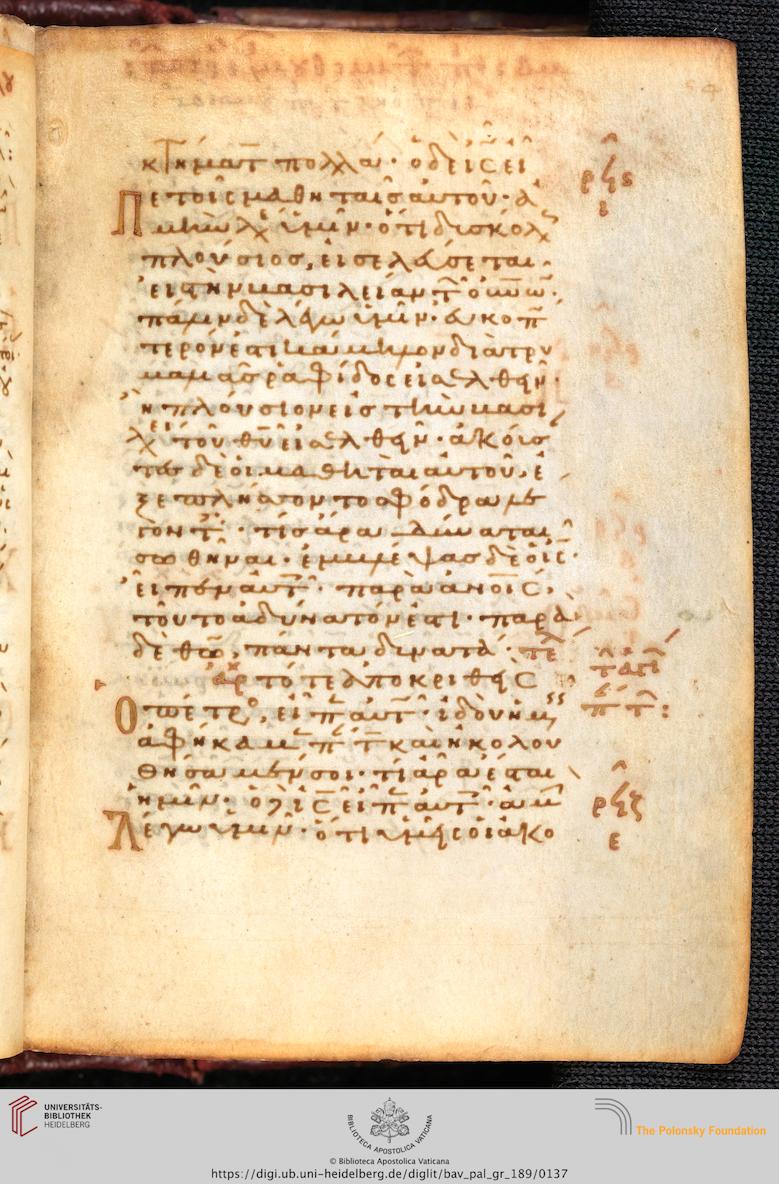 κτήματ πολλά· ὁ δὲ ις εἶ
πε τοῖς μαθηταῖς αὐτοῦ· ἀ
μὴν λέγ ὑμῖν· ὅτι δισκόλ
πλούσιος, εἰσελεύσεται
εἰς τὴν βασιλείαν τ οὐνων·
πάλιν δὲ λέγω ὑμῖν· εὐκοπ
τερον ἐστι κάμηλον διὰ τρυ
μαλιᾶς ραφίδος εἰσελθεῖν·
ἢ πλούσιον εἰς τὴν βασι
λει τοῦ θυ εἰσελθεῖν· ἀκούσ
τες δὲ οἱ μαθηταὶ αὐτοῦ, ἐ
ξεπλήσσοντο σφόδρα λε
γοντ· τίς ἄρα δύναται
σωθῆναι· ἐμβλέψας δὲ ὁ ις
εἶπεν αὐτ· παρὰ ανοις
τοῦτο ἀδύνατόν ἐστι· παρὰ
δὲ θω, πάντα δυνατά· τε
αρ τότε ἀποκριθεὶς
ὁ πέτρο, εἶπ αὐτ· ἰδοὺ ἡμ
ἀφήκαμ π τ καὶ ἠκολου
θήσαμέν σοι· τί ἄρα ἔσται
ἡμῖν· ὁ δὲ ις εἶπ αὐτ· ἀμ
λέγω ὑμῖν· ὅτι ὑμεῖς οἱ ἀκο
UNIVERSITÄTS-
BIBLIOTHEK
HEIDELBERG
BIBLIOTECA APOSTOLICA VATICANA
The Polonsky Foundation
© Biblioteca Apostolica Vaticana
https://digi.ub.uni-heidelberg.de/diglit/bav_pal_gr_189/0137